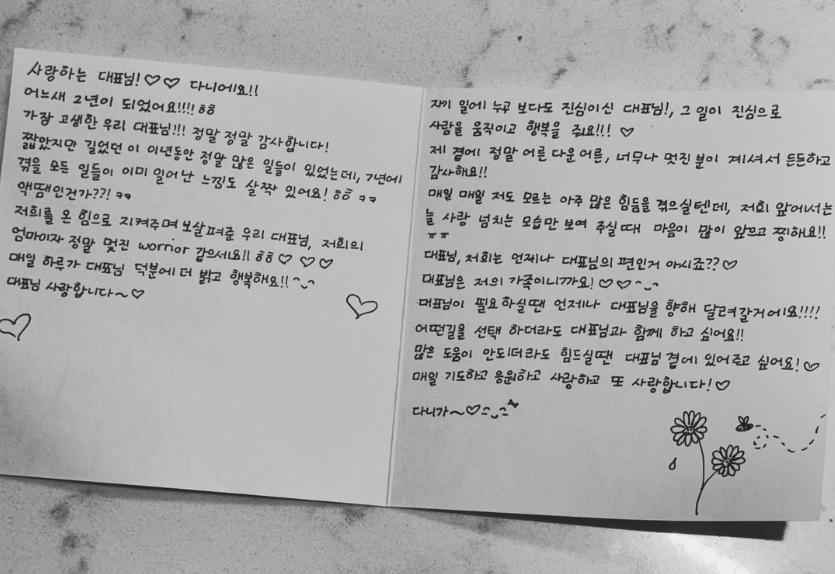 사랑하는 대표님!♡♡ 다니에요!!
어느새 2년이 되었어요!!!! ㅎㅎ
가장 고생한 우리 대표님!!! 정말 정말 감사합니다!
짧았지만 길었던 이 이년동안 정말 많은 일들이 있었는데, 7년에
겪을 모든 일들이 이미 일어난 느낌도 살짝 있어요! ㅎㅎ ㅋㅋ
액땜인건가??! ㅋㅋ
저희를 온 힘으로 지켜주며 보살펴준 우리 대표님, 저희의
엄마이자 정말 멋진 worrior 같으세요!! ㅎㅎ ♡ ♡ ♡
매일 하루가 대표님 덕분에 더 밝고 행복해요!! ^~^
대표님 사랑합니다~♡
자기 일에 누구 보다도 진심이신 대표님!, 그 일이 진심으로
사람을 움직이고 행복을 줘요!!! ♡
제 곁에 정말 어른 다운 어른, 너무나 멋진 분이 계셔서 든든하고
감사해요!!
매일 매일 저도 모르는 아주 많은 힘듦을 겪으실텐데, 저희 앞에서는
늘 사랑 넘치는 모습만 보여 주실때 마음이 많이 앞으고 찡해요!!
ㅠㅠ
대표님, 저희는 언제나 대표님의 편인거 아시죠??♡
대표님은 저의 가족이니까요! ♡♡^~^
대표님이 필요하실땐 언제나 대표님을 향해 달려갈거에요!!!!
어떤길을 선택 하더라도 대표님과 함께 하고 싶어요!!
많은 도움이 안되더라도 힘드실땐 대표님 곁에 있어주고 싶어요!♡
매일 기도하고 응원하고 사랑하고 또 사랑합니다!♡
다니가~♡^~^